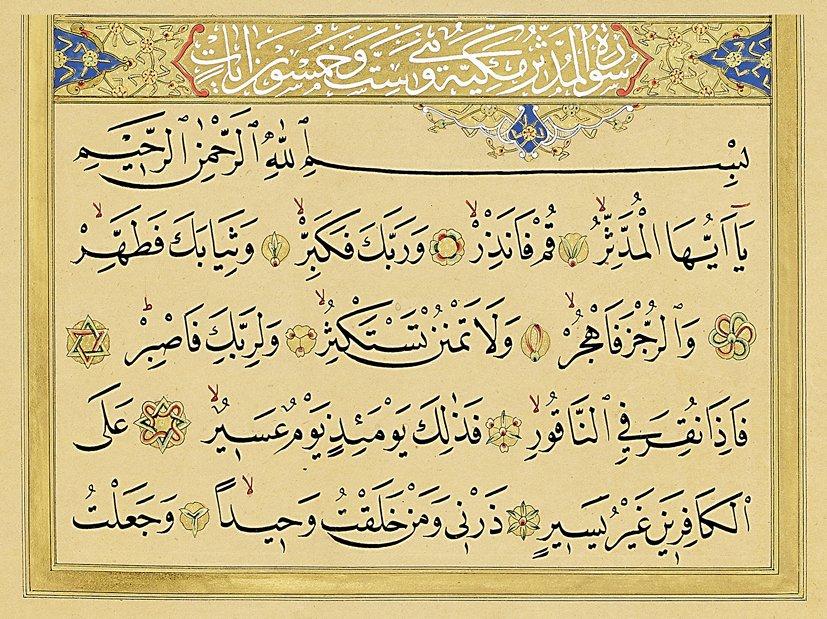 سورة المدثر مكية وهي ست وخمسون آيات
بِسْمِ ٱللّٰهِ ٱلرَّحْمٰنِ ٱلرَّحِيمِ
يَٓا اَيُّهَا الْمُدَّثِّرُ قُمْ فَاَنْذِرْ وَرَبَّكَ فَكَبِّرْ وَثِيَابَكَ فَطَهِّرْ
وَالرُّجْزَ فَاهْجُرْ وَلَا تَمْنُنْ تَسْتَكْثِرُ وَلِرَبِّكَ فَاصْبِرْ
فَاِذَا نُقِرَ فِي النَّاقُورِ فَذٰلِكَ يَوْمَئِذٍ يَوْمٌ عَسِيرٌ عَلَى
الْكَافِرِينَ غَيْرُ يَسِيرٍ ذَرْنِي وَمَنْ خَلَقْتُ وَحِيداً وَجَعَلْتُ